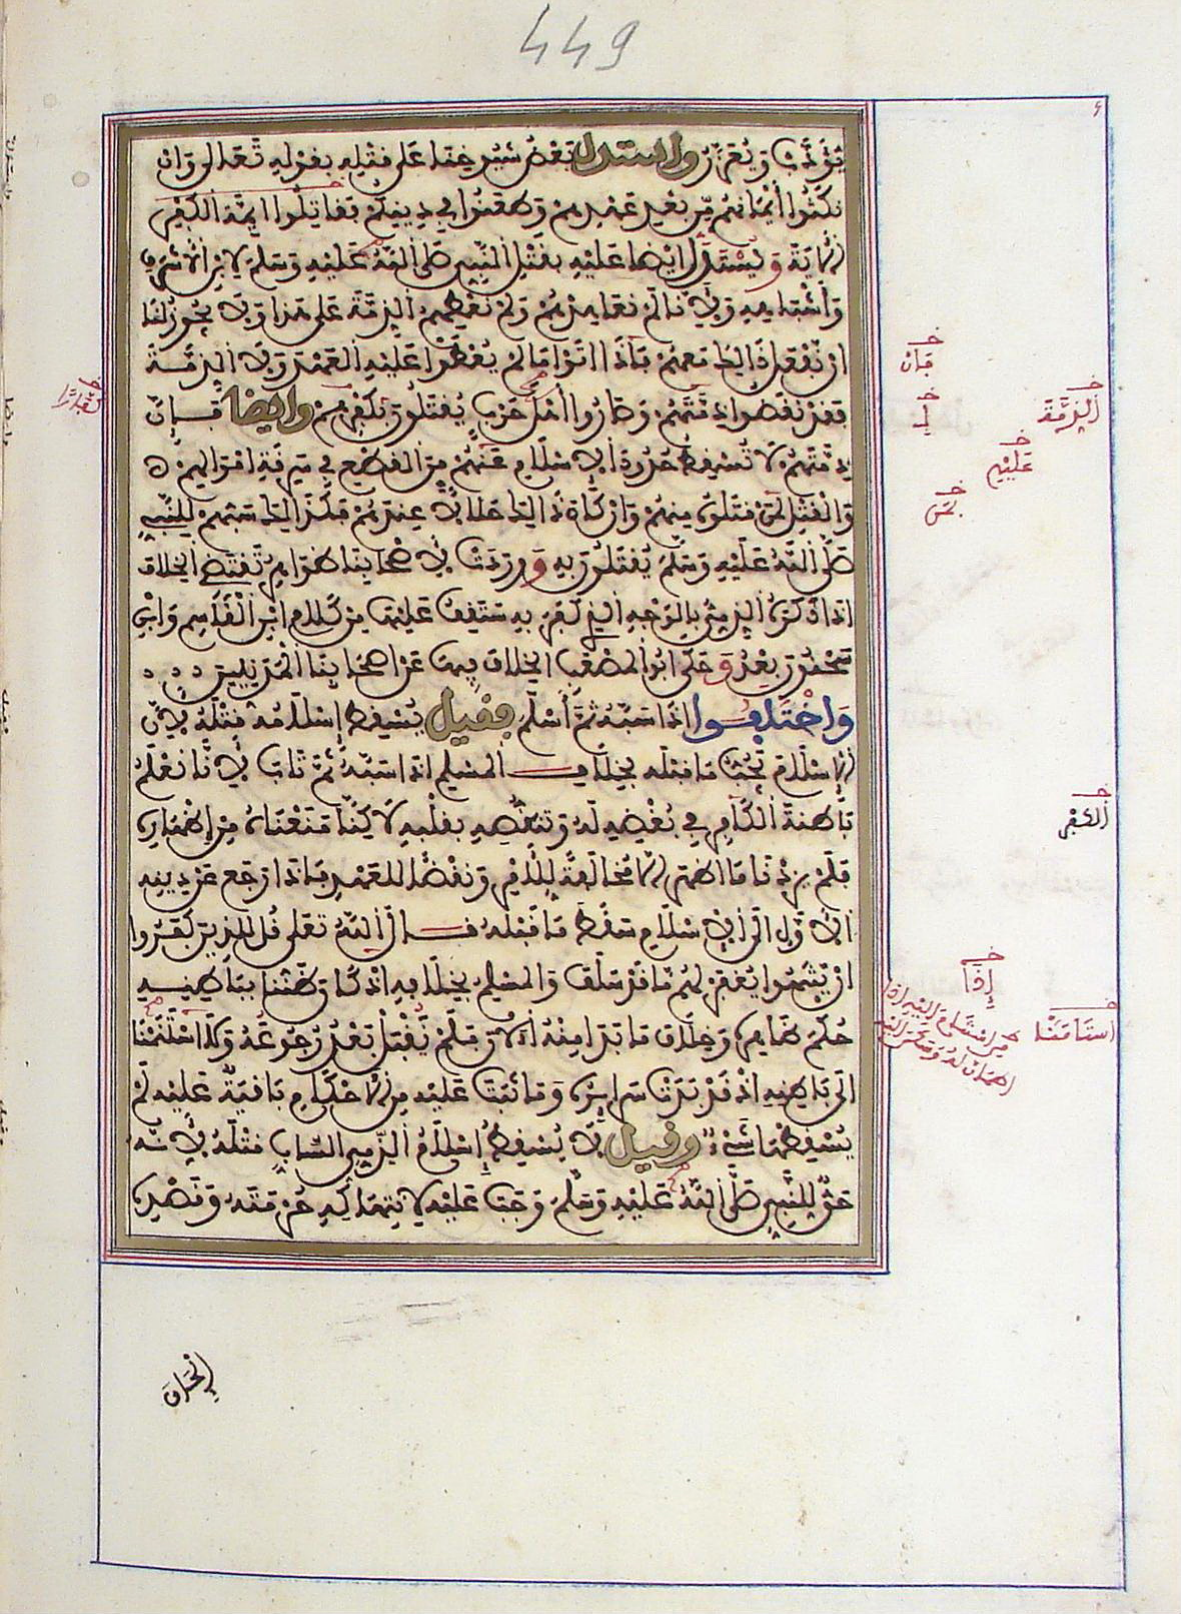 449
يُؤَدَّبُ وَيُعَزَّرُ واستدل بَعْضُ شُيُوخِنَا عَلَى قَتْلِهِ بِقَوْلِهِ تَعَالَى وَإِنْ
نَكَثُوا أَيْمَانَهُم مِّن بَعْدِ عَهْدِهِمْ وَطَعَنُوا فِي دِينِكُمْ فَقَاتِلُوا أَئِمَّةَ الْكُفْرِ
الْآيَةَ وَيُسْتَدَلُّ أَيْضًا عَلَيْهِ بِقَتْلِ النَّبِيِّ صَلَّى اللَّهُ عَلَيْهِ وَسَلَّمَ لِابْنِ الْأَشْرَفِ
وَأَشْبَاهِهِ وَلِأَنَّا لَمْ نُعَاهِدْهُمْ وَلَمْ نُعْطِهِمُ الذِّمَّةَ عَلَى هَذَا وَلَا يَجُوزُ لَنَا
أَنْ نَفْعَلَ ذَلِكَ مَعَهُمْ فَإِذَا أَتَوْا مَا لَمْ يُعْطَوْا عَلَيْهِ الْعَهْدَ وَلَا الذِّمَّةَ
فَقَدْ نَقَضُوا ذِمَّتَهُمْ وَصَارُوا أَهْلَ حَرْبٍ يُقْتَلُونَ بِكُفْرِهِمْ وايضا فَإِنَّ
ذِمَّتَهُمْ لَا تُسْقِطُ حُدُودَ الْإِسْلَامِ عَنْهُمْ مِنَ الْقَطْعِ فِي سَرِقَةِ أَمْوَالِهِمْ
وَالْقَتْلِ لِمَنْ قَتَلُوهُ مِنْهُمْ وَإِنْ كَانَ ذَلِكَ حَلَالًا عِنْدَهُمْ فَكَذَلِكَ سَبُّهُمْ لِلنَّبِيِّ
صَلَّى اللَّهُ عَلَيْهِ وَسَلَّمَ يُقْتَلُونَ بِهِ وَوَرَدَتْ لِأَصْحَابِنَا ظَوَاهِرُ تَقْتَضِي الْخِلَافَ
إِذَا ذَكَرَهُ الذِّمِّيُّ بِالْوَجْهِ الَّذِي كَفَرَ بِهِ سَتَقِفُ عَلَيْهَا مِنْ كَلَامِ ابْنِ الْقَاسِمِ وَابْنِ
سَحْنُونَ بَعْدُ وَحَكَى أَبُو الْمُصْعَبِ الْخِلَافَ فِيهَا عَنْ أَصْحَابِنَا الْمَدَنِيِّينَ
وَاخْتَلَفُوا إِذَا سَبَّهُ ثُمَّ أَسْلَمَ فَقِيلَ يُسْقِطُ إِسْلَامُهُ قَتْلَهُ لِأَنَّ
الْإِسْلَامَ يَجُبُّ مَا قَبْلَهُ بِخِلَافِ الْمُسْلِمِ إِذَا سَبَّهُ ثُمَّ تَابَ لِأَنَّا نَعْلَمُ
بَاطِنَةَ الْكَافِرِ فِي بُغْضِهِ لَهُ وَتَنَقُّصِهِ بِقَلْبِهِ لَكِنَّا مَنَعْنَاهُ مِنْ إِظْهَارِهِ
فَلَمْ يَزِدْنَا مَا أَظْهَرَهُ إِلَّا مُخَالَفَةً لِلْأَمْرِ وَنَقْضًا لِلْعَهْدِ فَإِذَا رَجَعَ عَنْ دِينِهِ
الْأَوَّلِ إِلَى الْإِسْلَامِ سَقَطَ مَا قَبْلَهُ قَالَ اللَّهُ تَعَلَى قُل لِّلَّذِينَ كَفَرُوا
إِن يَنتَهُوا يُغْفَرْ لَهُم مَّا قَدْ سَلَفَ وَالْمُسْلِمُ بِخِلَافِهِ إِذْ كَانَ ظَنُّنَا بِبَاطِنِهِ
حُكْمَ ظَاهِرِهِ وَخِلَافَ مَا بَدَا مِنْهُ الْآنَ فَلَمْ نَقْبَلْ بَعْدُ رُجُوعَهُ وَلَا اسْتَنَمْنَا
إِلَى بَاطِنِهِ إِذْ قَدْ بَدَتْ سَرَائِرُهُ وَمَا ثَبَتَ عَلَيْهِ مِنَ الْأَحْكَامِ بَاقِيَةٌ عَلَيْهِ لَمْ
يُسْقِطْهَا شَيْءٌ وقيل لَا يُسْقِطُ إِسْلَامُ الذِّمِّيِّ السَّابِّ قَتْلَهُ لِأَنَّهُ
حَقٌّ لِلنَّبِيِّ صَلَّى اللَّهُ عَلَيْهِ وَسَلَّمَ وَجَبَ عَلَيْهِ لِانْتِهَاكِهِ حُرْمَتَهُ وَقَصْدِهِ
فَإِنْ
الذِّمَّةَ
عَلَيْهِم
الْكُفْرِ
إِذَا
اسْتَأْمَنَّا
إِلْحَاقَ